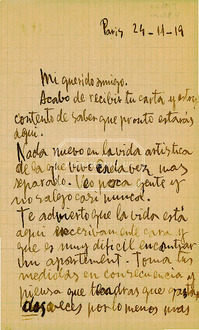 Paris 24-11-19
Mi querido amigo.
Acabo de recibir tu carta y estoy
contento de saber que pronto estarás
aqui.
Nada nuevo en la vida artistica
de la que vivo cada vez mas
separado. Veo poca gente y
no salgo casi nunca.
Te advierto que la vida está
aqui cara y
que es muy dificil encontrar
un apartement. Toma tus
medidas en consecuencia y
piensa que tendras que gastar
dos veces por lo menos mas